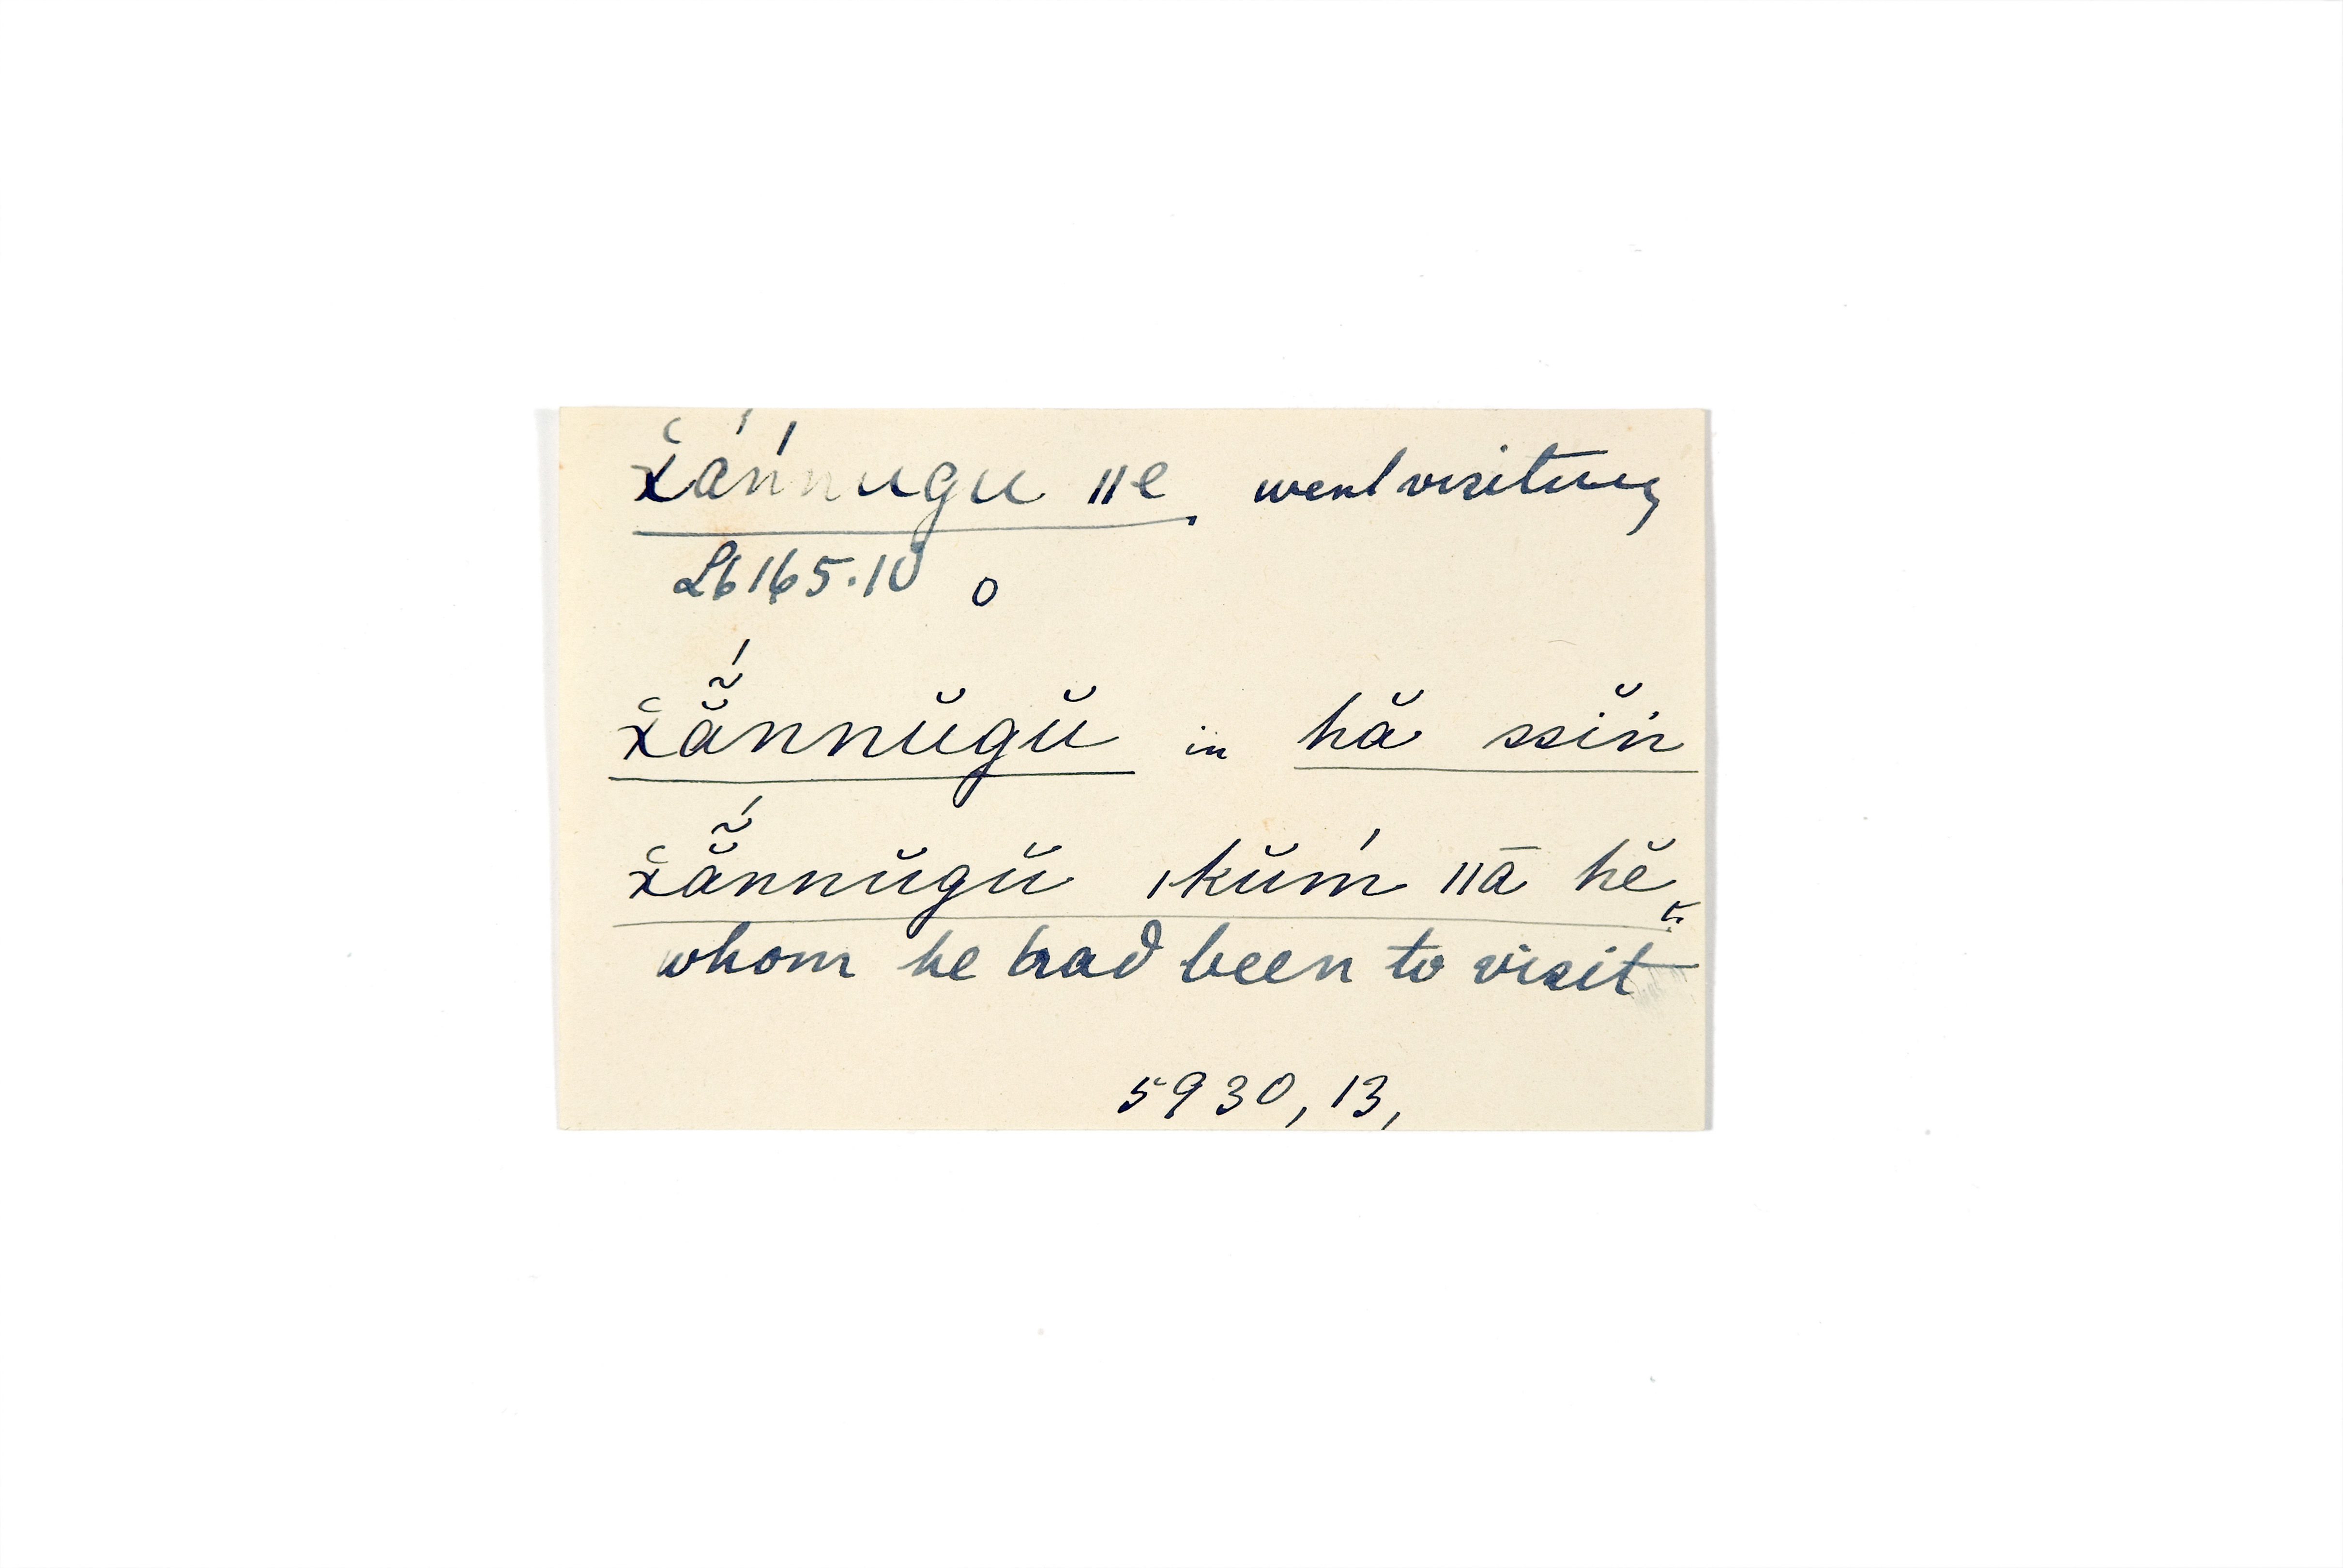 ẋań́nugu ǁe, went visiting
L6165.10 o
ẋã̆́nnŭgŭ in hă ssĭń
ẋã̆́nnŭgŭ ǀkŭḿ ǁā hĕ,
whom he had been to visit
5930, 13,